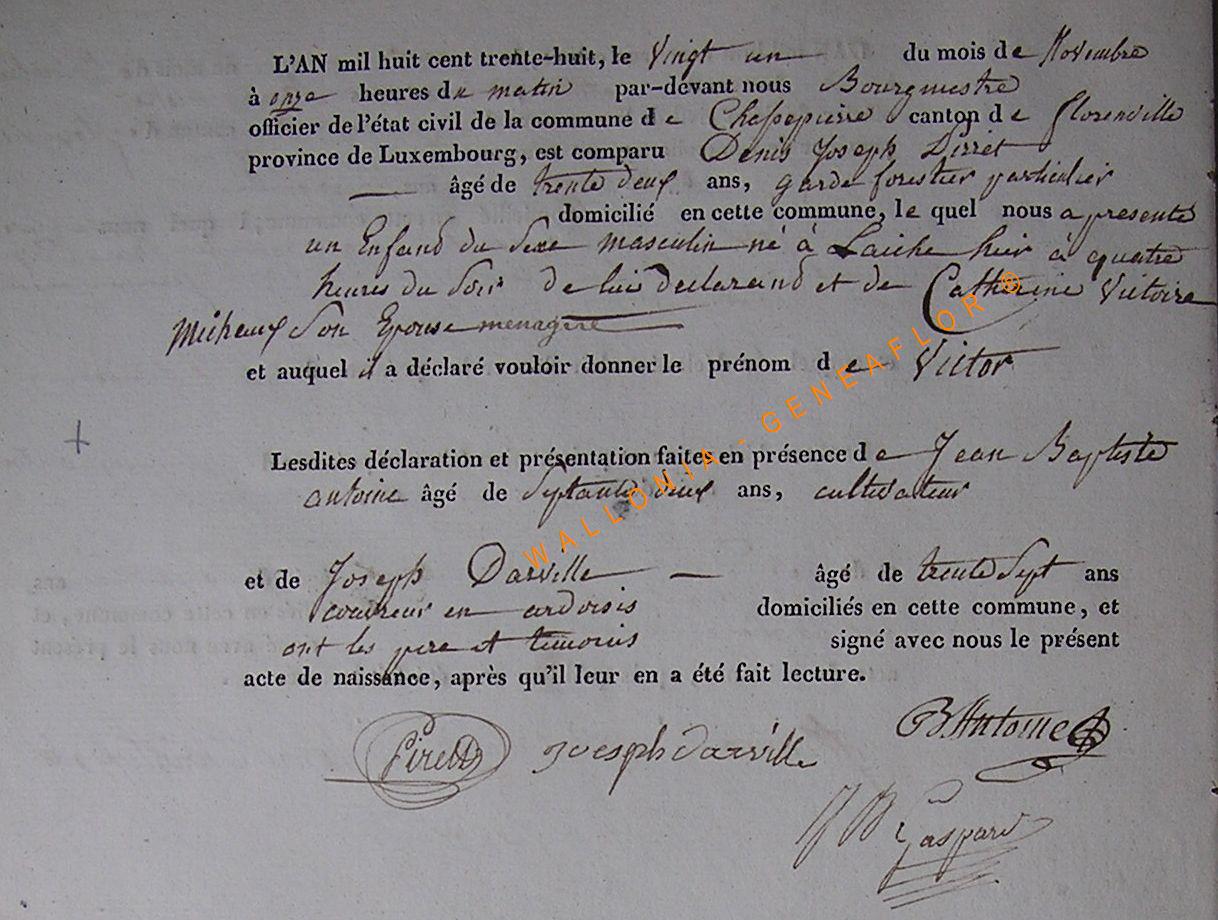 L'AN mil huit cent trente-huit, le Vingt un du mois de Novembre
à onze heures du matin par-devant nous Bourgmestre
officier de l'état civil de la commune de Chassepierre canton de florenville
province de Luxembourg, est comparu Denis Joseph Pirret
âgé de trente deux ans, garde forestier particulier
domicilié en cette commune, le quel nous a presenté
un Enfand du Sexe masculin né à Laiche hier à quatre
heures du Soir de lui declarand et de Catherine Victoire
Micheaux Son Epouse menagere
et auquel il a déclaré vouloir donner le prénom de Victor
Lesdites déclaration et présentation faites en présence de Jean Baptiste
antoine âgé de Septante deux ans, cultivateur
et de Joseph Darville âgé de trente Sept ans
couvreur en ardoisis domiciliés en cette commune, et
ont les pere et temoins signé avec nous le présent
acte de naissance, après qu'il leur en a été fait lecture.
Piret Joesph darville B. Antoine
J B Gaspard
WALLONIA - GENEAFLOR ®